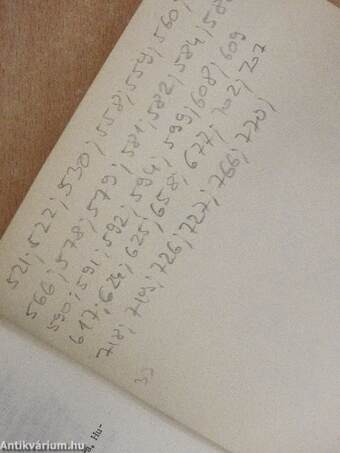 521; 522; 530; 558; 559; 560;
566; 578; 579; 581; 582; 584;
590; 591; 592; 594; 599; 608; 609
617; 624; 625; 658; 677; 702; 707
718; 719; 726; 727; 766; 770;
Hu-
Antikvárium.hu